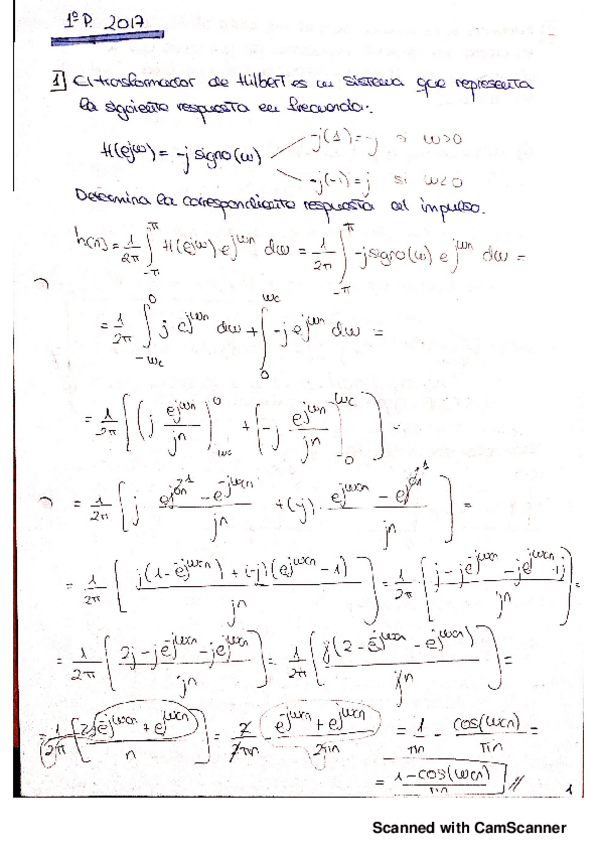 1º P. 2017
1) El transformador de Hilbert es un sistema que representa
la siguiente respuesta en frecuencia:
H(e^{jω}) = -j signo(ω) -j(1) = -j si ω>0
-j(-1) = j si ω<0
Determina la correspondiente respuesta al impulso.
h(n) = 1/2π ∫_{-π}^{π} H(e^{jω}) e^{jωn} dω = 1/2π ∫_{-π}^{π} -j signo(ω) e^{jωn} dω =
= 1/2π ∫_{-ωc}^{0} j e^{jωn} dω + ∫_{0}^{ωc} -j e^{jωn} dω =
= 1/2π [ (j e^{jωn}/jn ]_{-ωc}^{0} + [-j e^{jωn}/jn ]_{0}^{ωc} ) =
= 1/2π [ j (e^{j0n} - e^{-jωcn})/jn + (-j) · (e^{jωcn} - e^{j0n})/jn ] =
= 1/2π [ (j(1 - e^{-jωcn}) + (-j)(e^{jωcn} - 1))/jn ] = 1/2π [ (j - je^{-jωcn} - je^{jωcn} + j)/jn ] =
= 1/2π [ (2j - je^{-jωcn} - je^{jωcn})/jn ] = 1/2π [ j(2 - e^{-jωcn} - e^{jωcn})/jn ] =
= 1/2π [ (2 - e^{-jωcn} + e^{jωcn})/n ] = 2/2πn - (e^{-jωcn} + e^{jωcn})/2πn = 1/πn - cos(ωcn)/πn =
= (1 - cos(ωcn))/πn //
1
Scanned with CamScanner